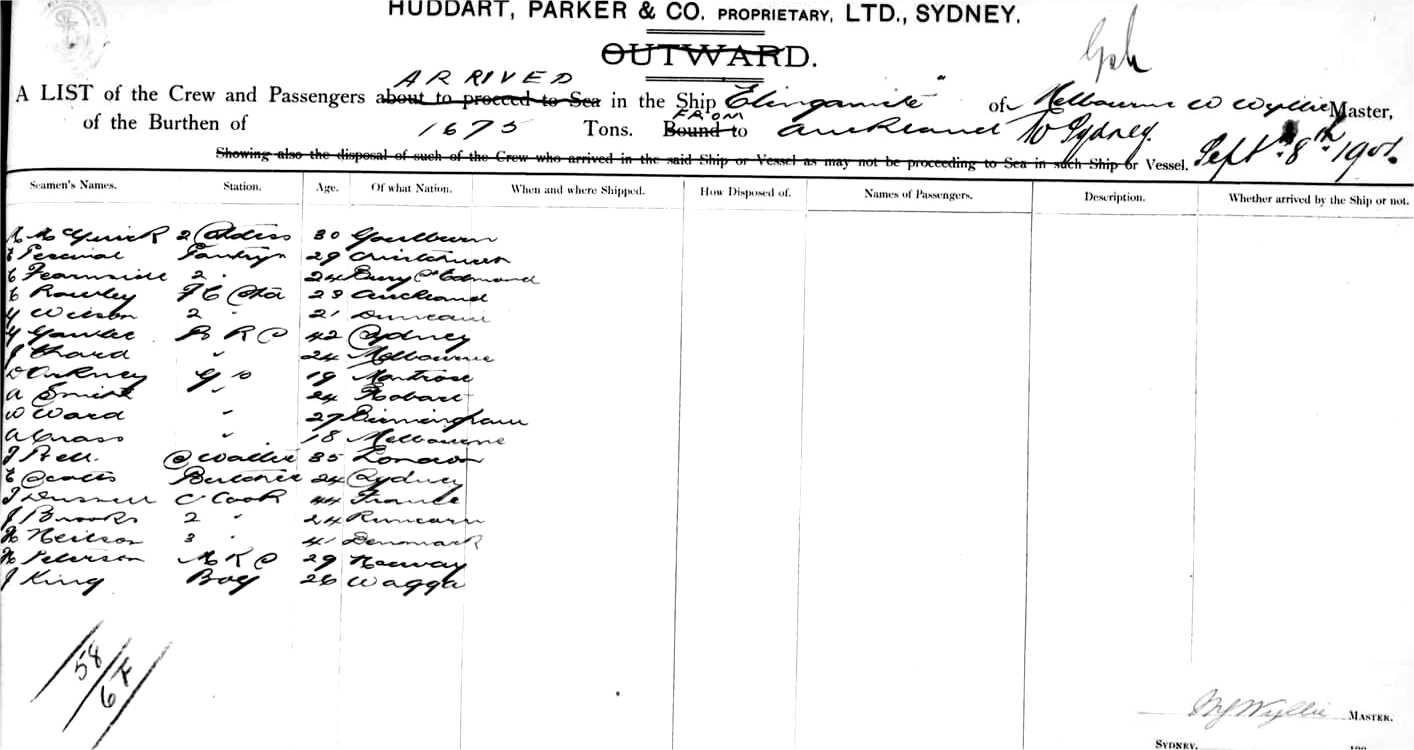 HUDDART, PARKER & CO. PROPRIETARY, LTD., SYDNEY.
OUTWARD.
ARRIVED
A LIST of the Crew and Passengers about to proceed to Sea in the Ship Elingamite of Melbourne W Wyllie Master,
FROM
of the Burthen of 1675 Tons. Bound to Auckland To Sydney. Sept 8th 190
Showing also the disposal of such of the Crew who arrived in the said Ship or Vessel as may not be proceeding to Sea in such Ship or Vessel.
Seamen's Names. Station. Age. Of what Nation. When and where Shipped. How Disposed of. Names of Passengers. Description. Whether arrived by the Ship or not.
2 30 Goulburn
E Percival Pantryn 29 Christchurch
E Fearnside 2 " 24 Bury St Edmond
E Rowley 29 Auckland
Wilson 2 " 21
42 Sydney
J " 24 Melbourne
19 Montrose
A Smith " 24 Hobart
W Ward " 27 Birmingham
A " 18 Melbourne
J Bell. 35 London
E Butcher 24 Sydney
C Cook 44 France
J Brooks 2 " 24 Runcorn
N Neilson 3 " 41 Denmark
N Peterson 29 Norway
J King Boy 26 Wagga
58
6 F
W Wyllie MASTER.
SYDNEY, 190